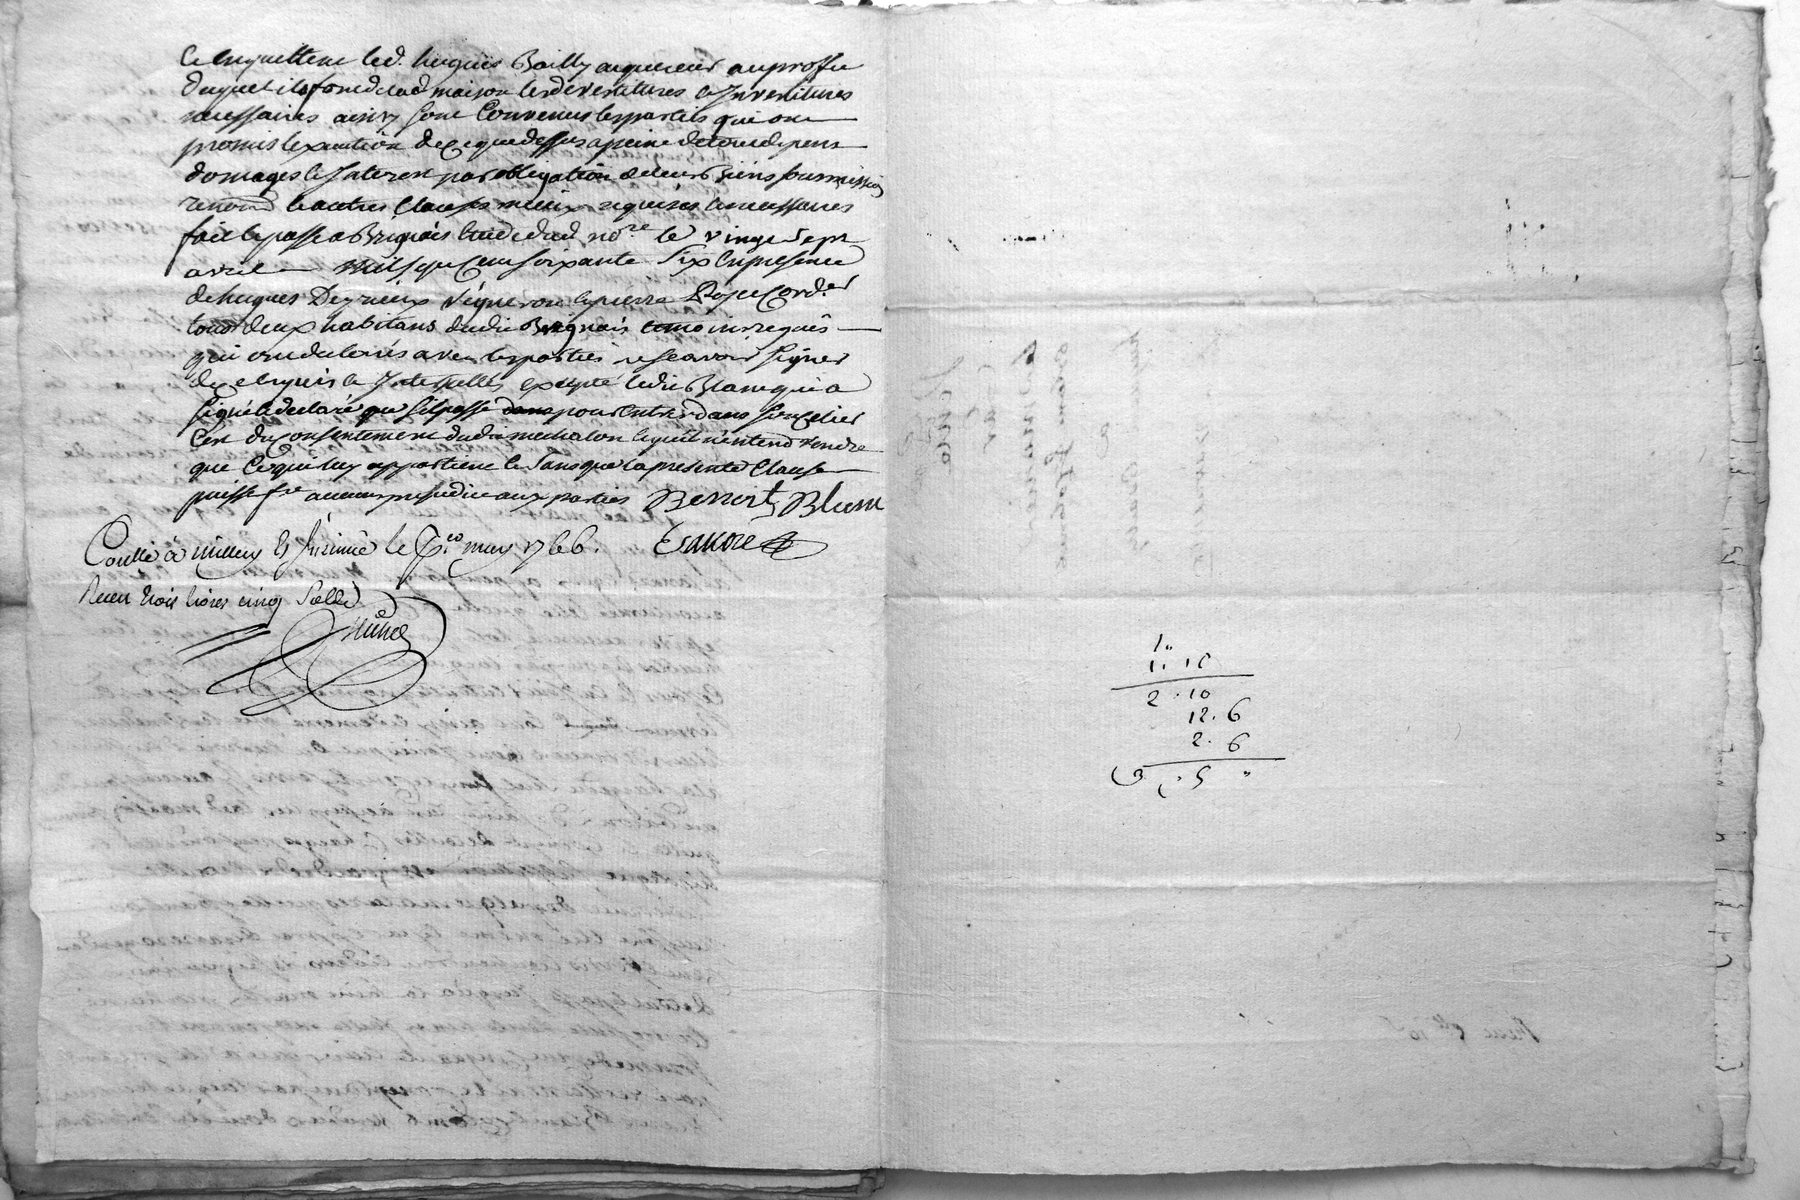 et en quittent led. hugues Bailly acquereur au proffit
duquel ils font de lad maison les devestitures et Investitures
necessaires ainsy sont Convenus les parties qui ont
promis lexecution de ce que dessus a peine de tous depens
domages et Interest par obligation de leurs biens soumissions
renond et autres Clauses mieux requises et necessaires
fait et passé a Brignais Etude dud. nore le vingt sept
avril mil sept Cent soixante six En presence
de hugues Deyrieux vigneron et pierre Cord.er
tous deux habitans dudit Brignais temoins requis
qui ont declarés avec les parties ne scavoir signer
de ce enquis et Interpellés excepté ledit Blanc qui a
signé et declaré que sil passe dans pour entrer dans son celier
C'est du Consentement dudit mechalon et quil n'entend vendre
que Ce qui luy appartient et sans que la presente Clause
puisse fre aucun prejudice aux parties Benoit Blanc
Conllé à millery et Insinué le may 1766.
Receu trois livres cinq sols
1"
1. 10
2 . 10
12. 6
2. 6
3 . 5 "